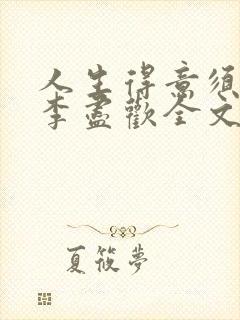 人生得意须
李尽歡全文
夏筱夢